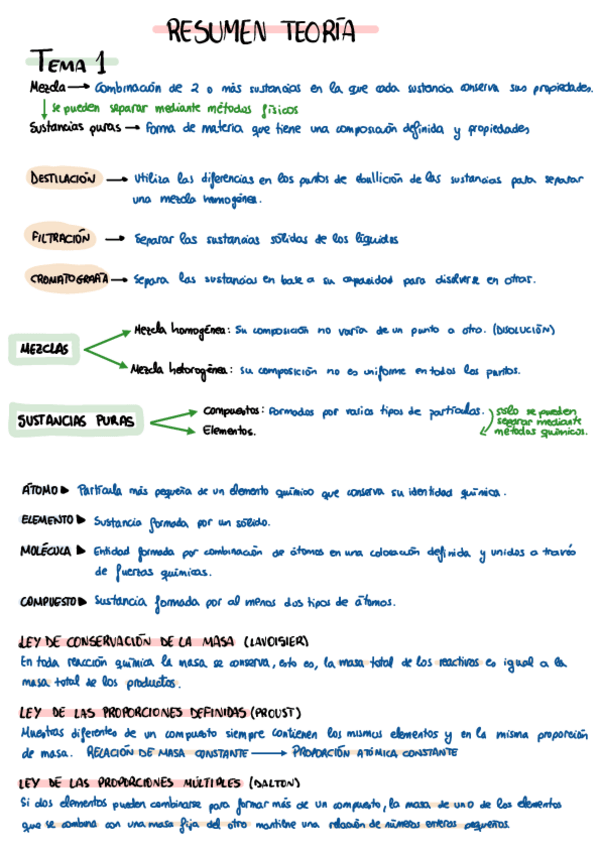 RESUMEN TEORÍA
TEMA 1
Mezcla → Combinación de 2 o más sustancias en la que cada sustancia conserva sus propiedades.
↓ se pueden separar mediante métodos físicos
Sustancias puras → Forma de materia que tiene una composición definida y propiedades
DESTILACIÓN → Utiliza las diferencias en los puntos de ebullición de las sustancias para separar
una mezcla homogénea.
FILTRACIÓN → Separar las sustancias sólidas de los líquidos
CROMATOGRAFÍA → Separa las sustancias en base a su capacidad para disolverse en otras.
MEZCLAS
Mezcla homogénea: Su composición no varía de un punto a otro. (DISOLUCIÓN)
Mezcla heterogénea: su composición no es uniforme en todos los puntos.
SUSTANCIAS PURAS
Compuestos: Formados por varios tipos de partículas.
Elementos.
solo se pueden
separar mediante
métodos químicos.
ÁTOMO ▶ Partícula más pequeña de un elemento químico que conserva su identidad química.
ELEMENTO ▶ Sustancia formada por un sólido.
MOLÉCULA ▶ Entidad formada por combinación de átomos en una colocación definida y unidos a través
de fuerzas químicas.
COMPUESTO ▶ Sustancia formada por al menos dos tipos de átomos.
LEY DE CONSERVACIÓN DE LA MASA (LAVOISIER)
En toda reacción química la masa se conserva, esto es, la masa total de los reactivos es igual a la
masa total de los productos.
LEY DE LAS PROPORCIONES DEFINIDAS (PROUST)
Muestras diferentes de un compuesto siempre contienen los mismos elementos y en la misma proporción
de masa. RELACIÓN DE MASA CONSTANTE → PROPORCIÓN ATÓMICA CONSTANTE
LEY DE LAS PROPORCIONES MÚLTIPLES (DALTON)
Si dos elementos pueden combinarse para formar más de un compuesto, la masa de uno de los elementos
que se combina con una masa fija del otro mantiene una relación de números enteros pequeños.